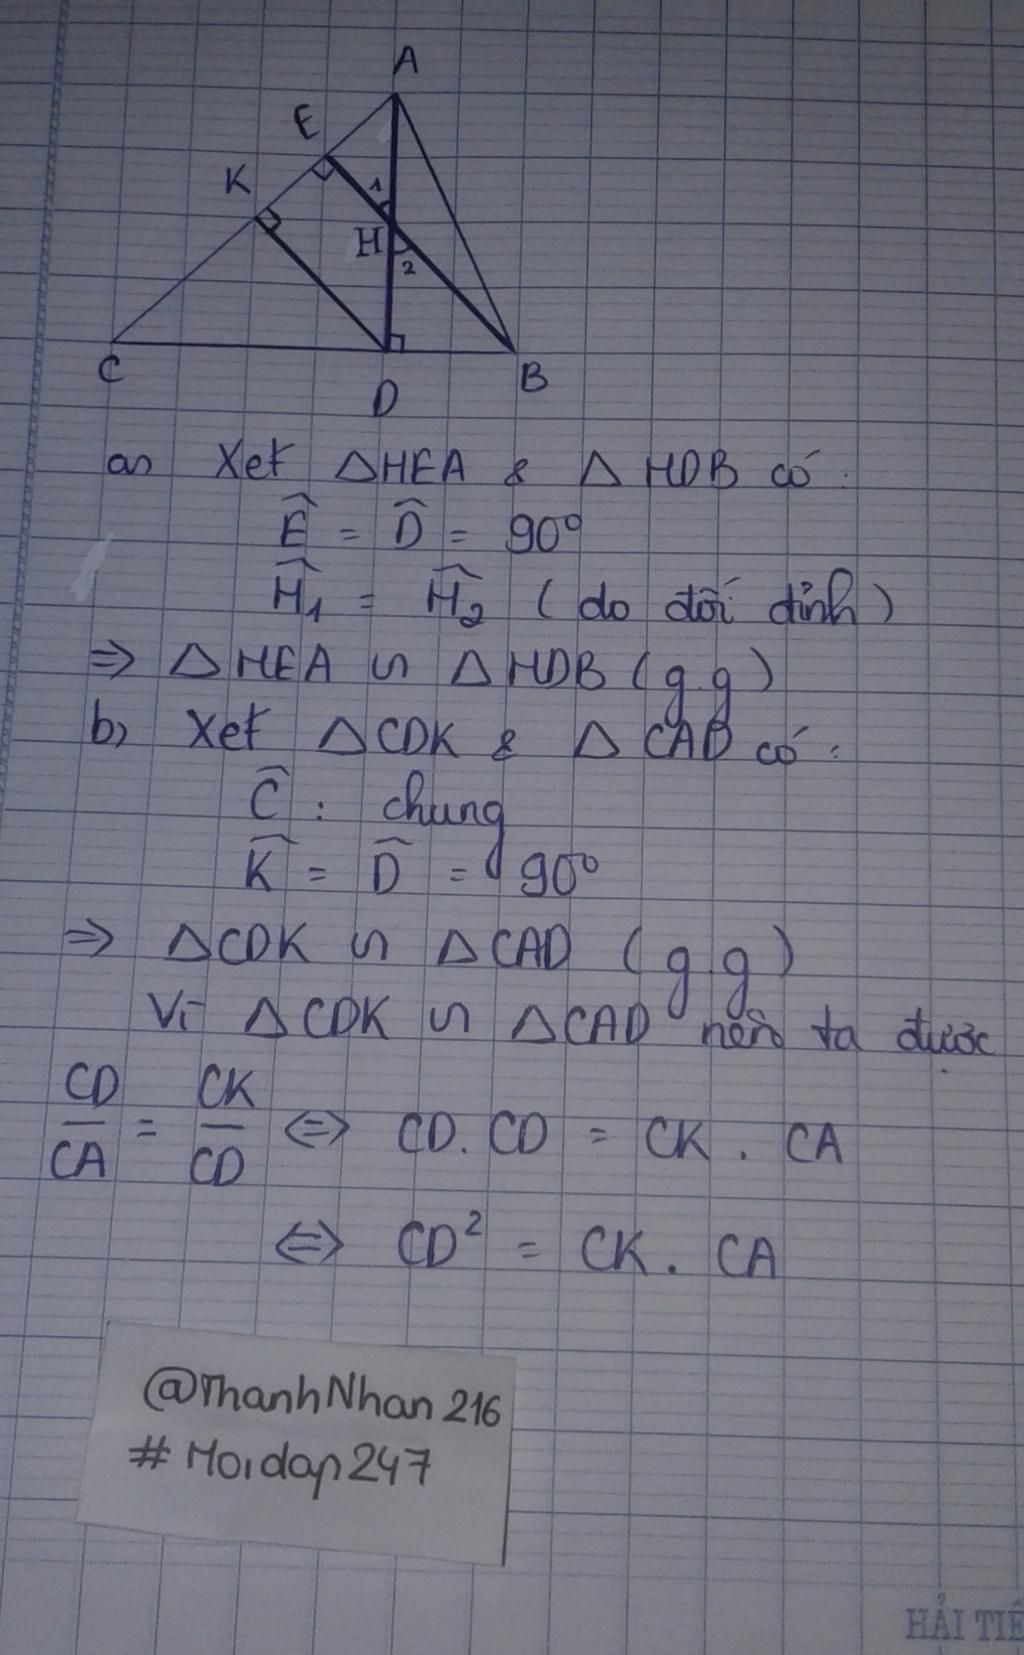 A
E
K
1
H
2
C
D
B
a) Xet △HEA & △HDB có:
Ê = D̂ = 90°
Ĥ₁ = Ĥ₂ (do đối đỉnh)
⇒ △HEA ∽ △HDB (g.g)
b) Xet △CDK & △CAD có:
Ĉ : chung
K̂ = D̂ = 90°
⇒ △CDK ∽ △CAD (g.g)
Vì △CDK ∽ △CAD nên ta được
CD/CA = CK/CD ⇔ CD.CD = CK . CA
⇔ CD² = CK . CA
@ThanhNhan216
#Hoidap247
HẢI TIẾ